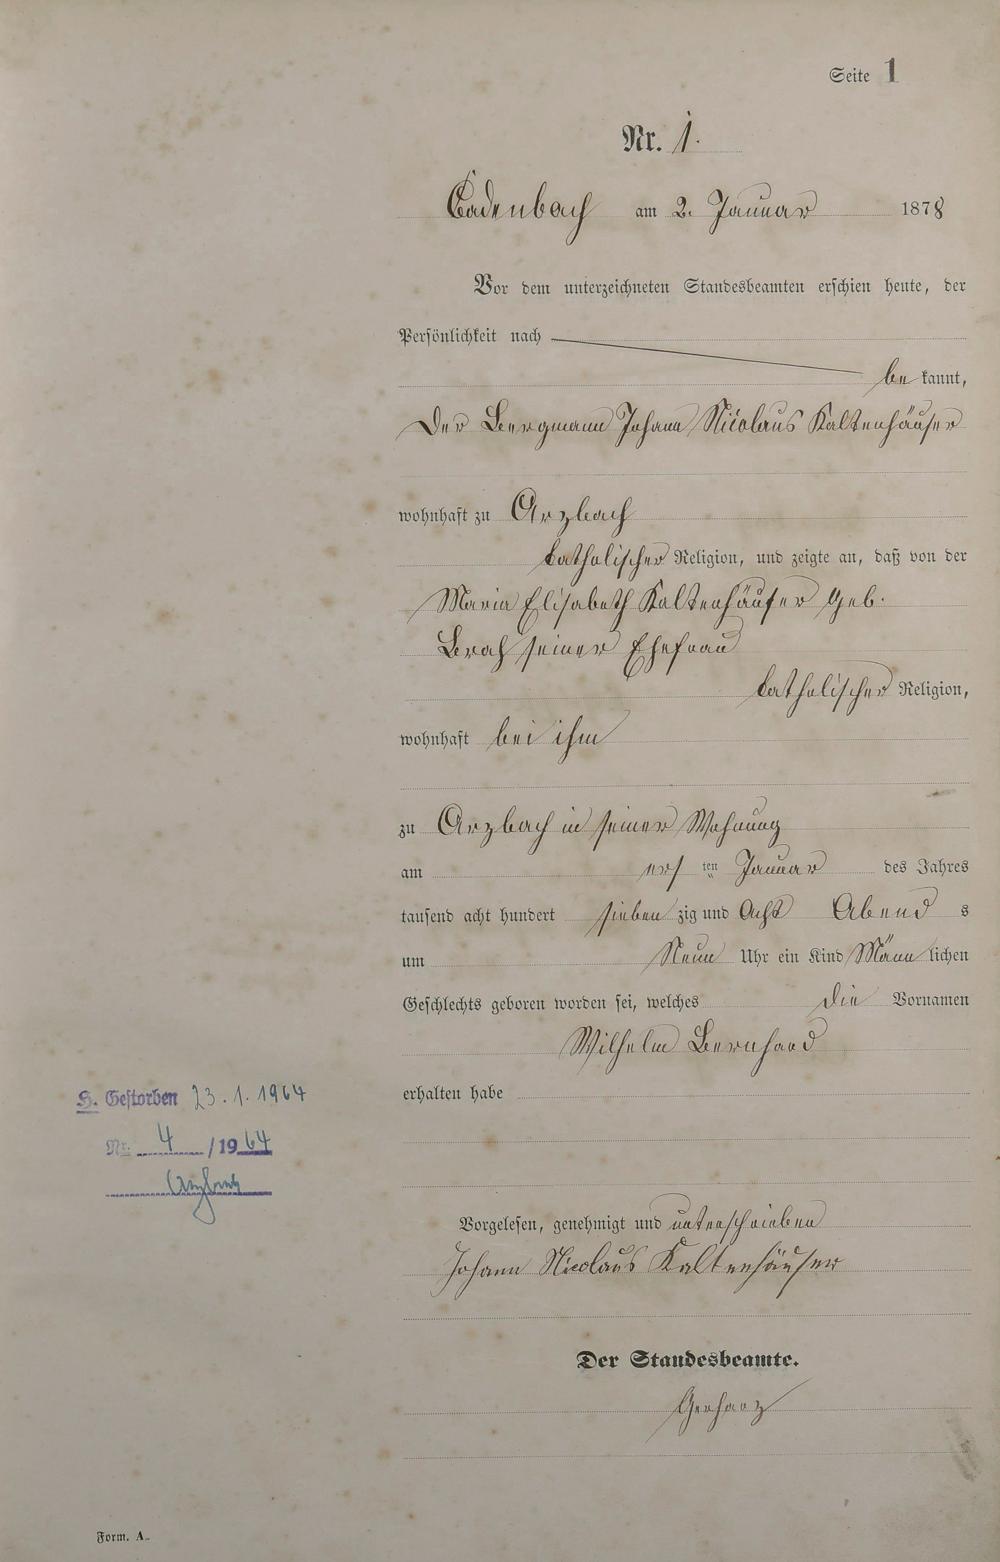 Seite 1
Nr. 1.
Cadenbach am 2. Januar 1878
Vor dem unterzeichneten Standesbeamten erschien heute, der
Persönlichkeit nach
bekannt,
Der Bergmann Johann Nicolaus Kaltenhäuser
wohnhaft zu Arzbach
katholischer Religion, und zeigte an, daß von der
Maria Elisabeth Kaltenhäuser geb.
Brach seiner Ehefrau
katholischer Religion,
wohnhaft bei ihm
zu Arzbach in seiner Wohnung
am ersten Januar des Jahres
tausend acht hundert siebenzig und Acht Abends
um Neun Uhr ein Kind Männlichen
Geschlechts geboren worden sei, welches die Vornamen
Wilhelm Bernhard
erhalten habe
H. Gestorben 23.1.1964
Nr. 4/1964
Vorgelesen, genehmigt und unterschrieben
Johann Nicolaus Kaltenhäuser
Der Standesbeamte.
Gerharz
Form. A.